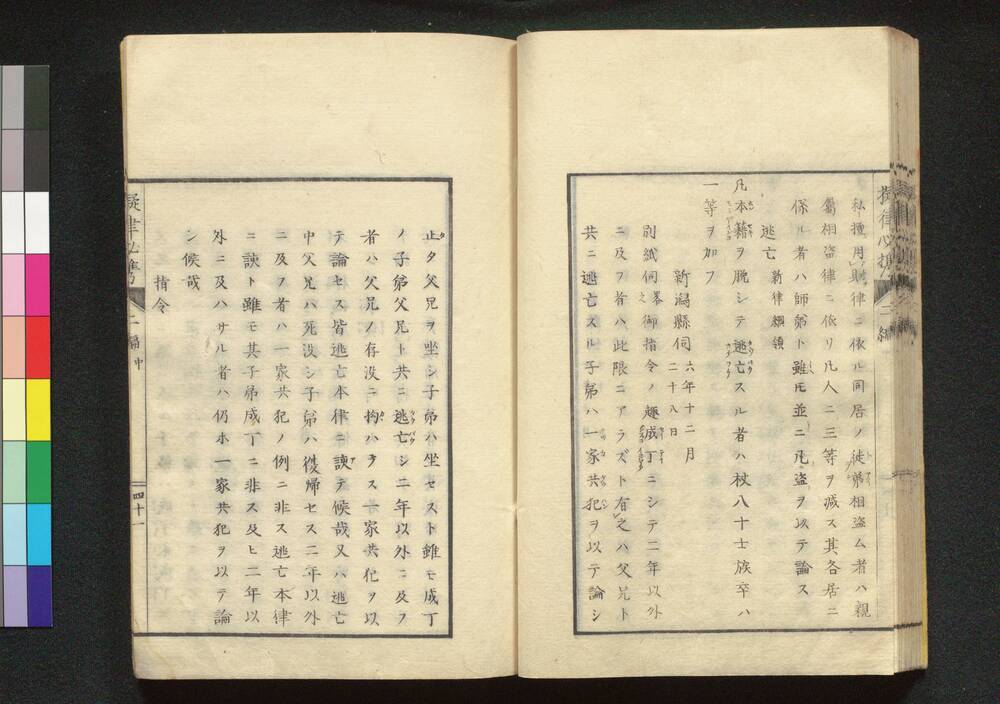 私擅用財律ニ依ル同居ノ徒弟相盗ム者ハ親
屬相盗律ニ依リ凡人ニ三等ヲ減ス其各居ニ
係ル者ハ師弟ト雖モ並ニ凡盗ヲ以テ論ス
逃亡 新律綱領
凡本籍ヲ脱シテ逃亡スル者ハ杖八十士族卒ハ
一等ヲ加フ
新潟縣伺 六年十二月二十八日
別紙伺畧之御指令ノ趣成丁ニシテ二年以外
ニ及フ者ハ此限ニアラズト有之ハ父兄ト
共ニ逃亡スル子弟ハ一家共犯ヲ以テ論シ
止タ父兄ヲ坐シ子弟ハ坐セスト雖モ成丁
ノ子弟父兄ト共ニ逃亡シ二年以外ニ及フ
者ハ父兄ノ存没ニ拘ハラス一家共犯ヲ以
テ論セス皆逃亡本律ニ問テ候哉又ハ逃亡
中父兄ハ死没シ子弟ハ復帰セス二年以外
ニ及フ者ハ一家共犯ノ例ニ非ス逃亡本律
ニ問ト雖モ其子弟成丁ニ非ス及ヒ二年以
外ニ及ハサル者ハ仍ホ一家共犯ヲ以テ論
シ候哉
指令
擬律必携 二編中
四十一